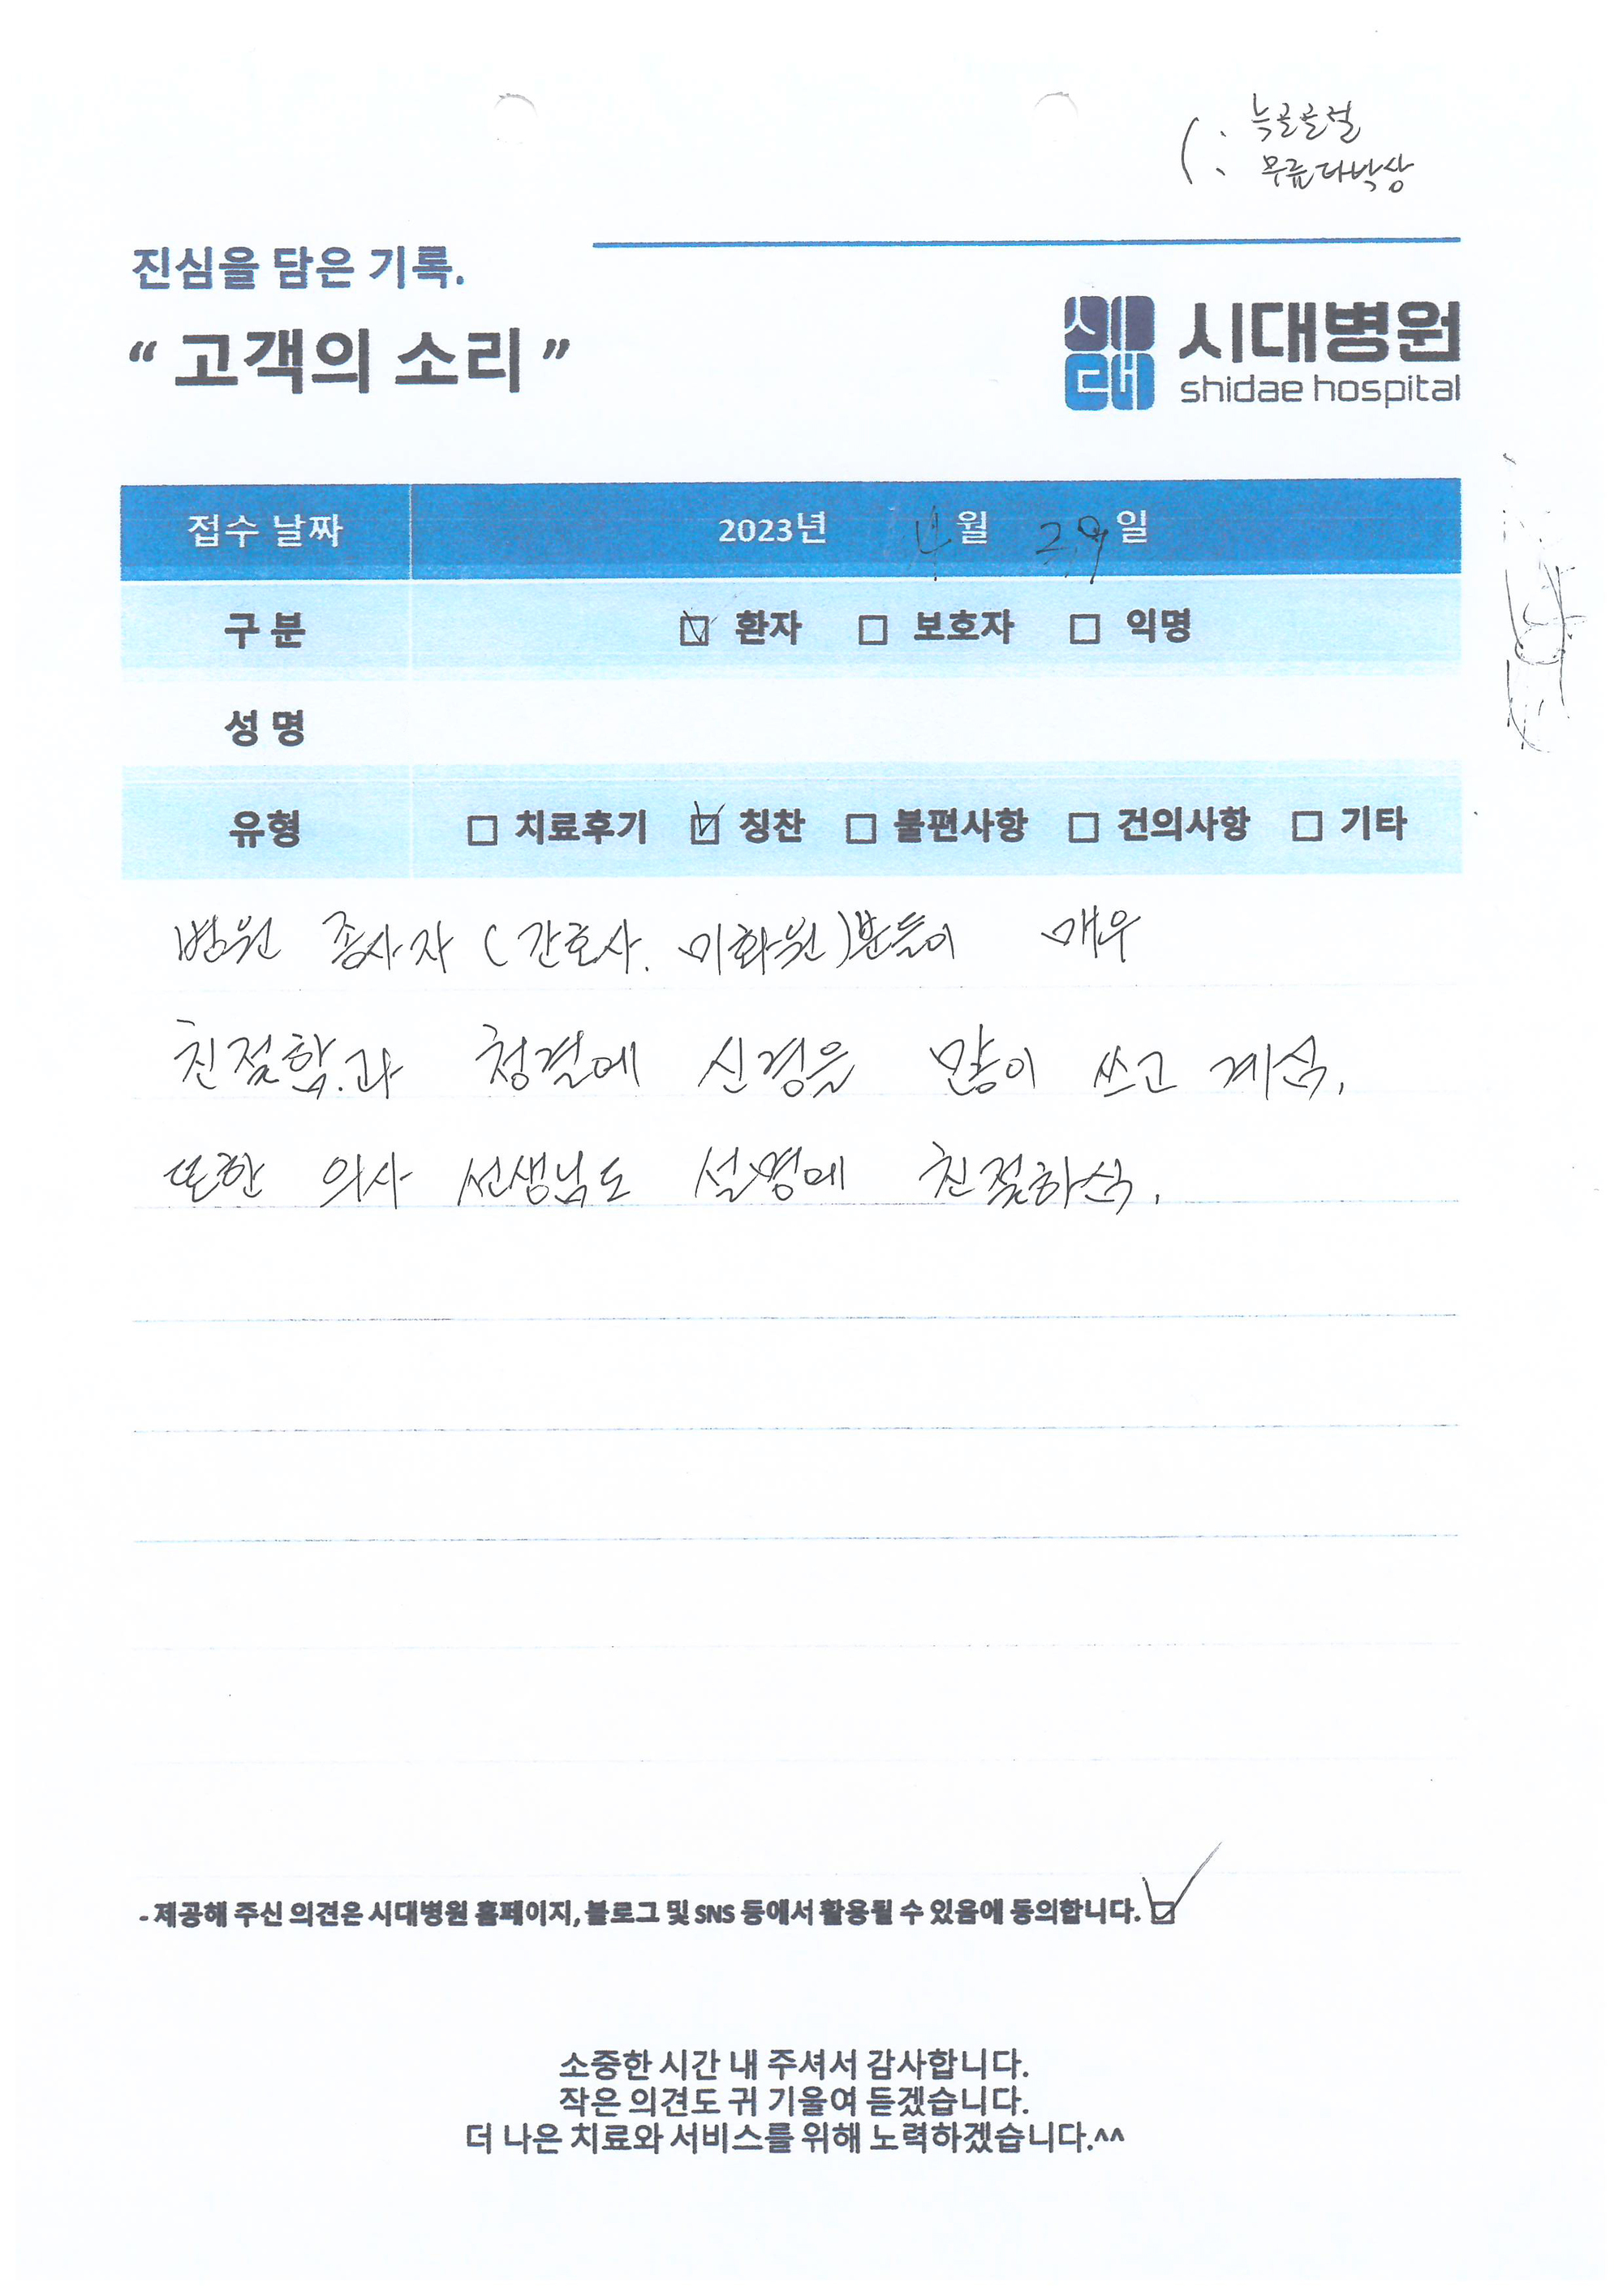 늑골골절
무릎타박상
진심을 담은 기록.
“ 고객의 소리 ”
시대병원
shidae hospital
접수 날짜 2023년 4월 29일
구 분 ☑ 환자 □ 보호자 □ 익명
성 명
유형 □ 치료후기 ☑ 칭찬 □ 불편사항 □ 건의사항 □ 기타
병원 종사자 (간호사. 미화원)분들이 매우
친절함.과 청결에 신경을 많이 쓰고 계심.
또한 의사 선생님도 설명에 친절하심.
- 제공해 주신 의견은 시대병원 홈페이지, 블로그 및 SNS 등에서 활용될 수 있음에 동의합니다. ☑
소중한 시간 내 주셔서 감사합니다.
작은 의견도 귀 기울여 듣겠습니다.
더 나은 치료와 서비스를 위해 노력하겠습니다.^^